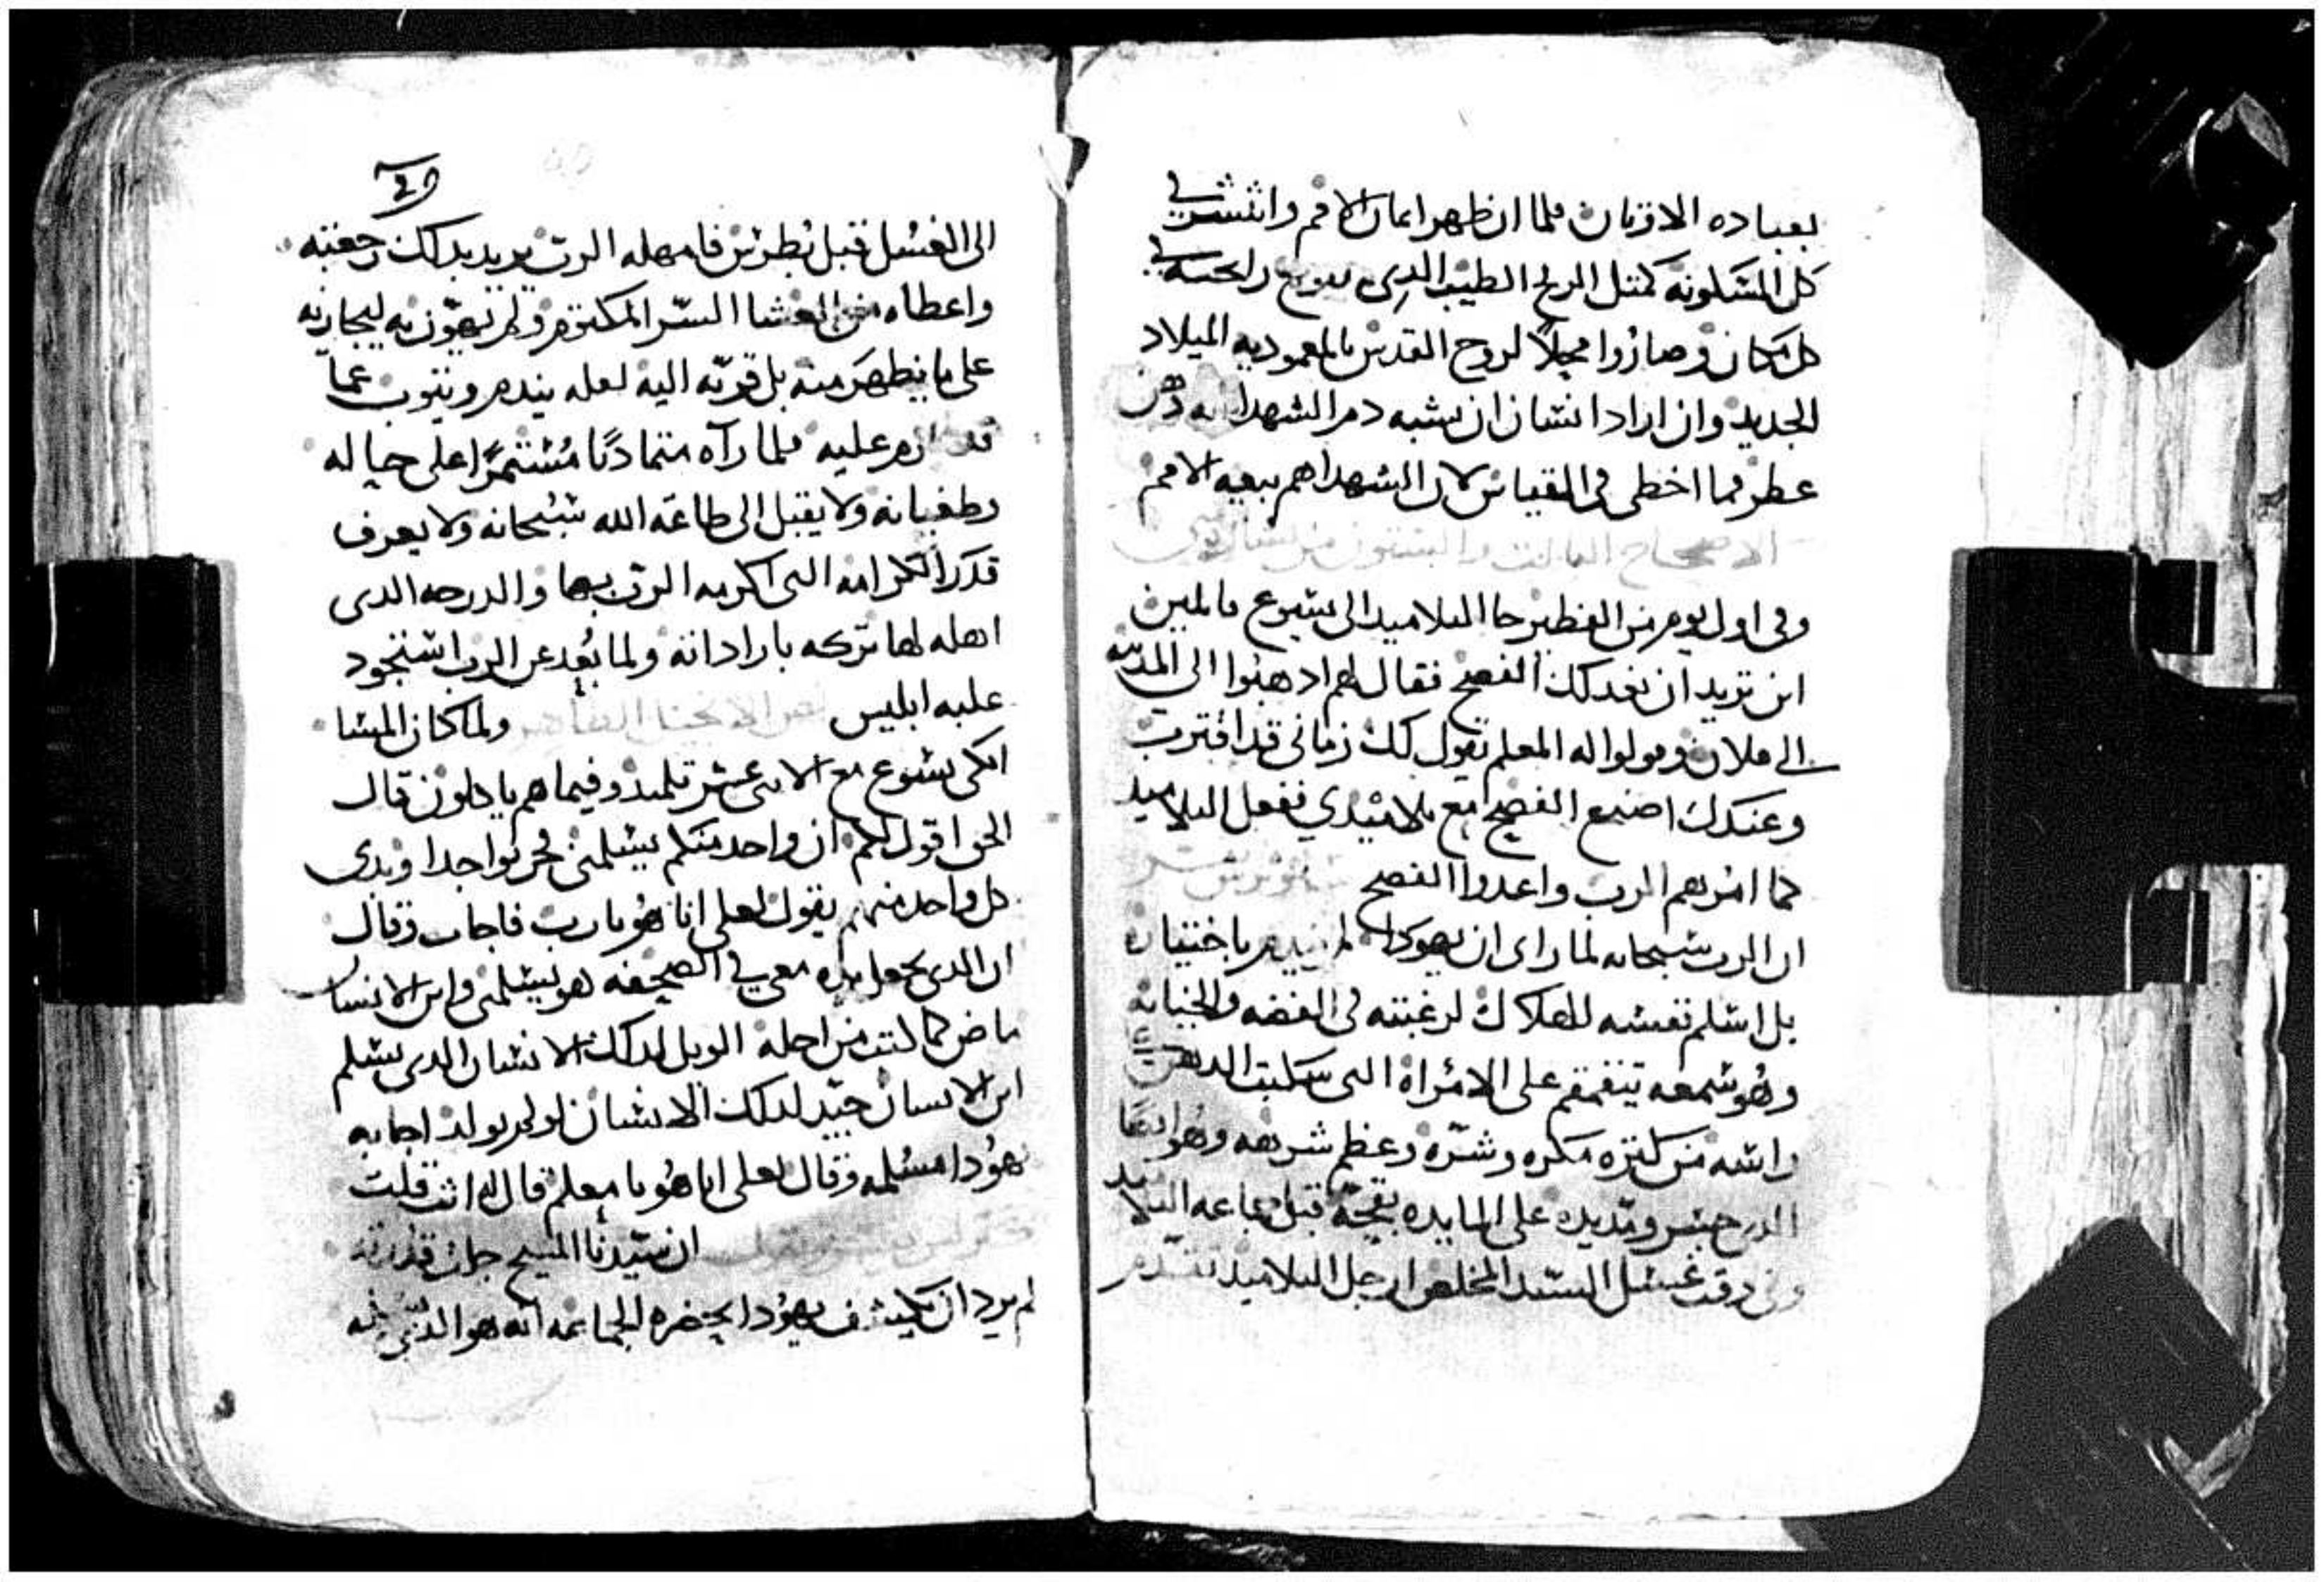 بعباده الاوثان فلما ان ظهر ايمان الامم وانتشر في
كل المسكونه كمثل الريح الطيب الدي يفوح رايحته في
كل مكان وصاروا محلاً لروح القدس بالمعموديه الميلاد
الجديد وان اراد انسان ان يشبه دم الشهدا انه دهن
عطر فما اخطى فى القياس لان الشهدا هم بيعه الامم
الاصحاح التالت والستون من بشاره متى
وفى اول يوم من الفطير جا التلاميد الى يسوع قايلين
اين تريد ان نعد لك الفصح فقال لهم ادهبوا الى المدينه
الى فلان وقولوا له المعلم يقول لك زمانى قد اقترب
وعندك اصنع الفصح مع تلاميدي ففعل التلاميد
كما امرهم الرب واعدوا الفصح
ان الرب سبحانه لما راى ان يهودا لم يندم باختياره
بل اسلم نفسه للهلاك لرغبته فى الفضه والخيانه
وهو سمعه يتقمقم على الامراة التى سكبت الدهن على
راسه من كتره مكره وشره وعظم شرهه وهو ايضا
الدي جسر ومد يده على المايده بقحة قبل جماعه التلاميد
وفى وقت غسل السيد المخلص ارجل التلاميد تقدم
الى الغسل قبل بطرس فامهله الرب يريد بدلك رجعته
واعطاه من العشا السر المكتوم ولم يهون به ليجازيه
على ما يظهر منه بل قربه اليه لعله يندم ويتوب عما
قد عزم عليه فلما رآه متماديًا مستمرًا على حياله
وطغيانه ولا يقبل الى طاعة الله سبحانه ولا يعرف
قدر الكرامه التى اكرمه الرب بها والدرجه الدى
اهله لها تركه بارادانه ولما بُعد عن الرب استحود
عليه ابليس نص الانجيل الطاهر ولما كان المسا
اتكى يسوع مع الاتنى عشر تلميد وفيما هم ياكلون قال
الحق اقول لكم ان واحد منكم يسلمنى فحزنوا جدا وبدى
كل واحد منهم يقول لعلى انا هو يا رب فاجاب وقال
ان الدى يجعل يده معي في الصحفه هو يسلمنى وابن الانسان
ماض كما كتب من اجله الويل لدلك الانسان الدى يسلم
ابن الانسان جيّد لدلك الانسان لو لم يولد اجابه
يهودا مسلمه وقال لعلى انا هو يا معلم قال له انت قلت
ان سيدنا المسيح جلت قدرته
لم يرد ان يكشف يهودا بحضره الجماعه انه هو الدي